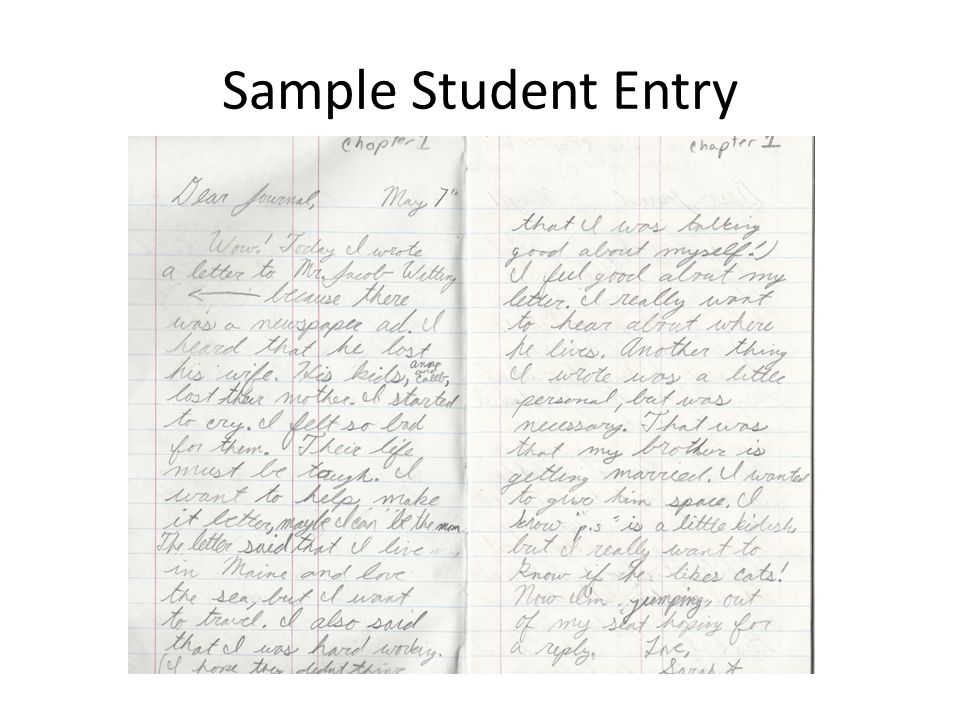 Sample Student Entry
Chapter 1
Dear Journal, May 7th
Wow! Today I wrote
a letter to Mr. Jacob Witting
because there
was a newspaper ad. I
heard that he lost
his wife. His kids, anna and caleb,
lost their mother. I started
to cry. I felt so bad
for them. Their life
must be tough. I
want to help make
it better, maybe I can be the mom.
The letter said that I live
in Maine and love
the sea, but I want
to travel. I also said
that I was hard working.
(I hope they didn't think
Chapter 1
that I was talking
good about myself!)
I feel good about my
letter. I really want
to hear about where
he lives. Another thing
I wrote was a little
personal, but was
necessary. That was
that my brother is
getting married. I wanted
to give him space. I
know "p.s" is a little kidish,
but I really want to
know if he likes cats!
Now I'm jumping out
of my seat hoping for
a reply. Love,
Sarah